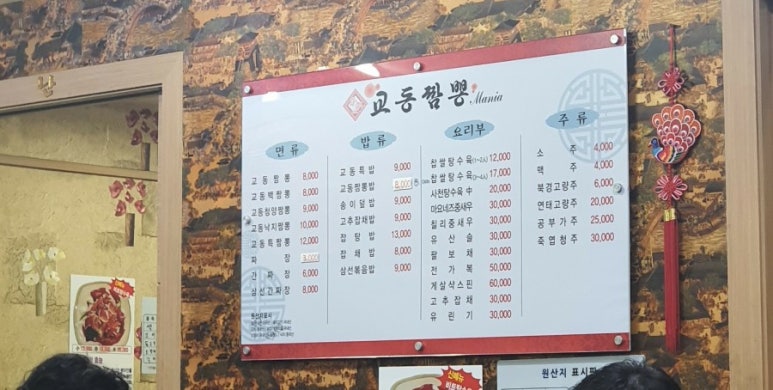 교동짬뽕 Mania
면 류
교 동 짬 뽕 8,000
교 동 백 짬 뽕 8,000
교동청양짬뽕 9,000
교동낙지짬뽕 10,000
교 동 특 짬 뽕 12,000
짜 장
간 짜 장 6,000
삼 선 간 짜 장 8,000
밥 류
교 동 특 밥 9,000
교동짬뽕밥 8,000
송 이 덮 밥 9,000
고추잡채밥 9,000
잡 탕 밥 13,000
잡 채 밥 8,000
삼선볶음밥 9,000
요리부
찹 쌀 탕 수 육 12,000
찹 쌀 탕 수 육 17,000
사천탕수육 中 20,000
마요네즈중새우 30,000
칠 리 중 새 우 30,000
유 산 슬 30,000
팔 보 채 30,000
전 가 복 50,000
게 살 삭 스 핀 60,000
고 추 잡 채 30,000
유 린 기 30,000
주 류
소 주 4,000
맥 주 4,000
북경고량주 6,000
연태고량주 20,000
공 부 가 주 25,000
죽 엽 청 주 30,000
원산지표시
신메뉴
원산지 표시판